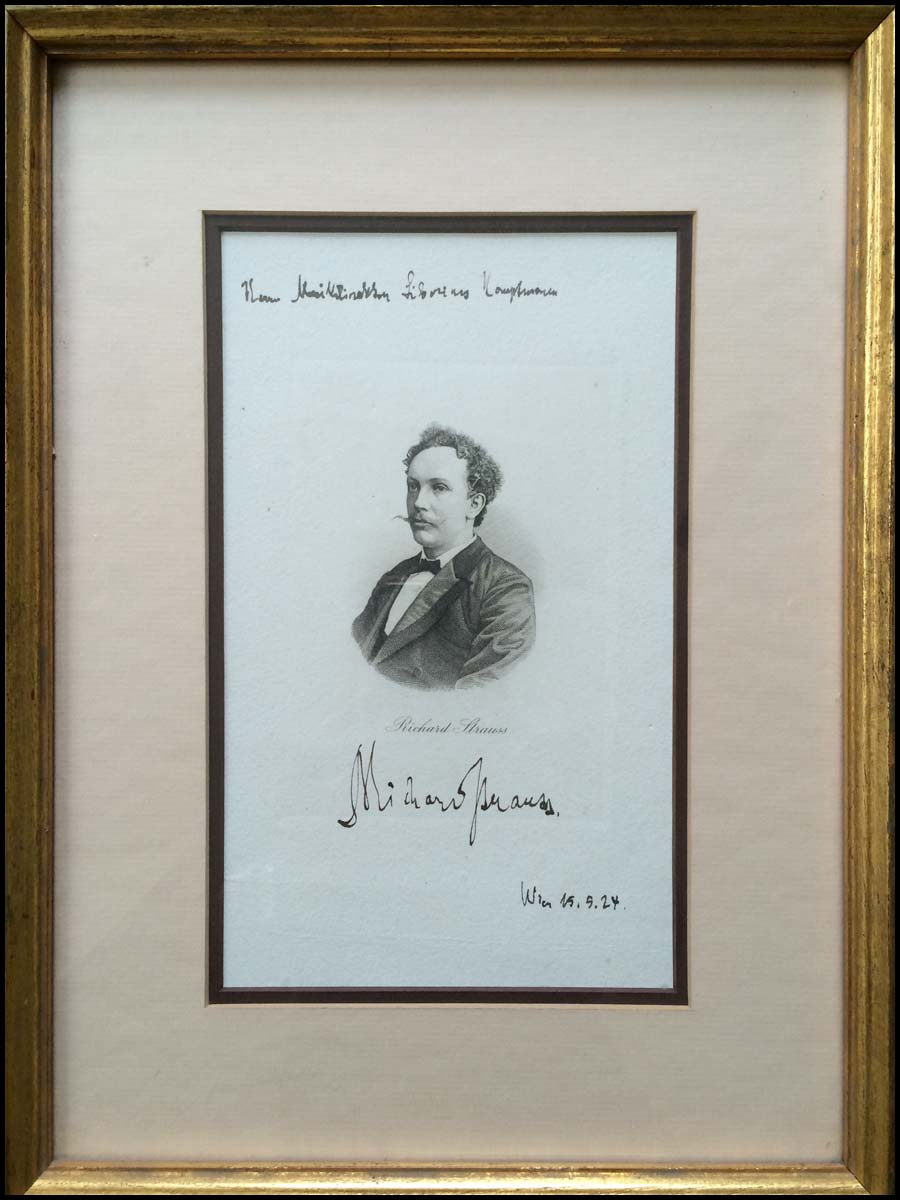 Herrn Musikdirektor Liborius Hauptmann
Richard Strauss
Richard Strauss.
Wien 15.5.24.